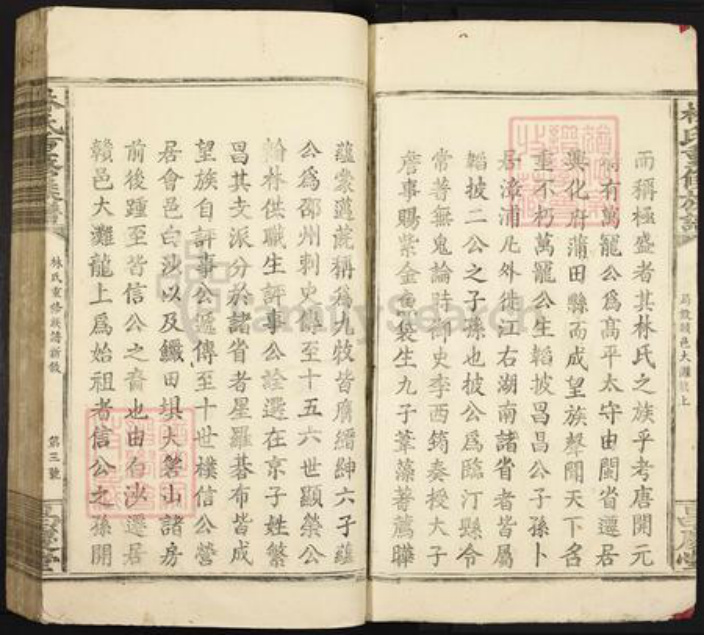 林氏重修族譜
而稱極盛者其林氏之族乎考唐開元
有萬寵公爲高平太守由閩省遷居
興化府蒲田縣而成望族聲聞天下名
垂不朽萬寵公生韜披昌昌公子孫卜
居漳浦凡外徙江右湖南諸省者皆屬
韜披二公之子孫也披公爲臨汀縣令
常著無鬼論時御史李西筠奏授大子
詹事賜紫金魚袋生九子葦藻著薦曄
蘊蒙邁蔇稱爲九牧皆膺縉紳六子蘊
公爲邵州刺史傳至十五六世顯榮公
翰林供職生評事公詮選在京子姓繁
昌其支派分於諸省者星羅碁布皆成
望族自評事公遞傳至十世樸信公營
居會邑白沙以及鱖田埧大磐山諸房
前後踵至皆信公之裔也由白沙遷居
贛邑大灘龍上爲始祖者信公之孫開
林氏重修族譜新敘
第三號
FamilySearch